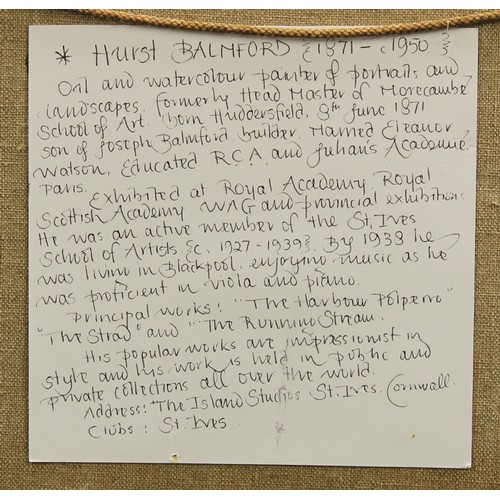 * Hurst BALMFORD {1871 - c1950 }
Oil and watercolour painter of portraits and
landscapes, formerly Head Master of Morecambe
School of Art. born Huddersfield, 8th June 1871
son of Joseph Balmford builder. Married Eleanor
Watson, Educated R.C.A. and Julian's Academie.
Paris.
Exhibited at Royal Academy, Royal
Scottish Academy WAG and provincial exhibitions
He was an active member of the St, Ives
School of Artists {c. 1927-1939}. By 1938 he
was living in Blackpool, enjoying music as he
was proficient in viola and piano.
Principal works: "The Harbour Polperro"
"The Strad" and "The Running Stream.
His popular works are impressionist in
style and his work is held in public and
private collections all over the world.
Address: "The Island Studios St. Ives. Cornwall.
Clubs: St. Ives